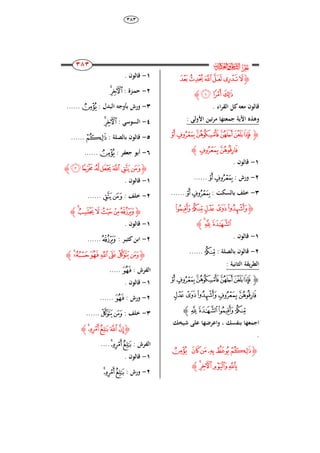 ٣٨٣
٣٨٣
﴿ لَا تَدْرِي لَعَلَّ ٱللَّهَ يُحْدِثُ بَعْدَ
ذَٰلِكَ أَمْرًا ١ ﴾
قالون معه كل القراء .
وهذه الآية جمعتها مرتين الأولى :
﴿ فَإِذَا بَلَغْنَ أَجَلَهُنَّ فَأَمْسِكُوهُنَّ بِمَعْرُوفٍ أَوْ
فَارِقُوهُنَّ بِمَعْرُوفٍ ﴾
١- قالون .
٢- ورش : بِمَعْرُوفٍ أَوْ ......
٣- خلف بالسكت : بِمَعْرُوفٍ أَوْ ......
﴿ وَأَشْهِدُوا ذَوَىْ عَدْلٍ مِّنكُمْ وَأَقِيمُوا
ٱلشَّهَٰدَةَ لِلَّهِ ﴾
١- قالون .
٢- قالون بالصلة : مِّنكُمْ ......
الطريقة الثانية :
﴿ فَإِذَا بَلَغْنَ أَجَلَهُنَّ فَأَمْسِكُوهُنَّ بِمَعْرُوفٍ أَوْ
فَارِقُوهُنَّ بِمَعْرُوفٍ وَأَشْهِدُوا ذَوَىْ عَدْلٍ
مِّنكُمْ وَأَقِيمُوا ٱلشَّهَٰدَةَ لِلَّهِ ﴾
اجمعها بنفسك ، واعرضها على شيخك
.
﴿ ذَٰلِكُمْ يُوعَظُ بِهِۦ مَن كَانَ يُؤْمِنُ
بِٱللَّهِ وَٱلْيَوْمِ ٱلْأَخِرِ ﴾
١- قالون .
٢- حمزة : ٱلْأَخِرِ
٣- ورش بأوجه البدل : يُؤْمِنُ ......
٤- السوسي : ٱلْأَخِرِ
٥- قالون بالصلة : ذَٰلِكُمْ ......
٦- أبو جعفر : يُؤْمِنُ ......
﴿ وَمَن يَتَّقِ ٱللَّهَ يَجْعَل لَّهُۥ مَخْرَجًا ٢ ﴾
١- قالون .
٢- خلف : وَمَن يَتَّقِ ......
﴿ وَيَرْزُقْهُ مِنْ حَيْثُ لَا يَحْتَسِبُ ﴾
١- قالون .
٢- ابن كثير : وَيَرْزُقْهُ ......
﴿ وَمَن يَتَوَكَّلْ عَلَى ٱللَّهِ فَهُوَ حَسْبُهُۥ ﴾
الفرش : فَهُوَ ......
١- قالون .
٢- ورش : فَهُوَ ......
٣- خلف : وَمَن يَتَوَكَّلْ ......
﴿ إِنَّ ٱللَّهَ بَٰلِغُ أَمْرِهِۦ ﴾
الفرش : بَٰلِغُ أَمْرِهِۦ ......
١- قالون .
٢- ورش : بَٰلِغُ أَمْرِهِۦ ......